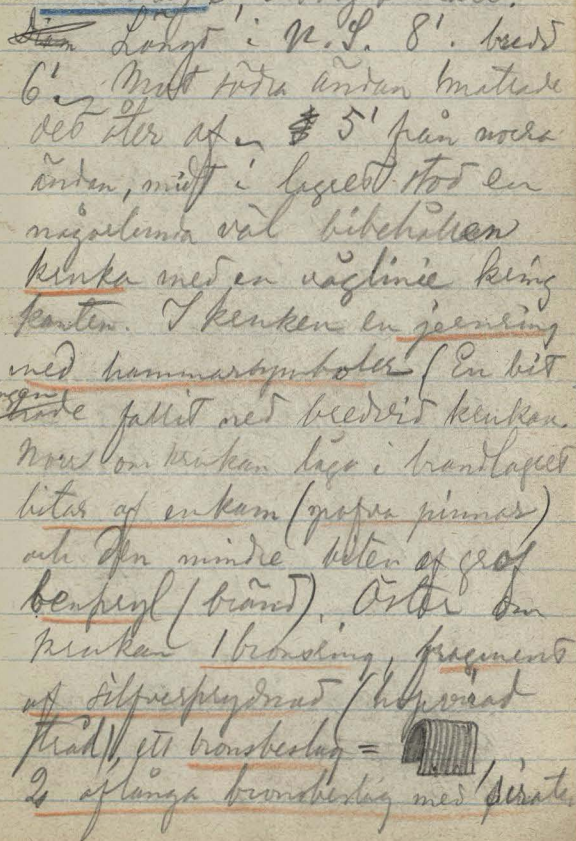 Längd i N.S. 8'. bredd
6'. Mot södra ändan smalnade
det åter af. 5' från norra
ändan, midt i lagret stod en
någorlunda väl bibehållen
kruka med en våglinie kring
kanten. I krukan en jernring
med hammarsymboler (En bit
hade fallit ned bredvid krukan.
Norr om krukan lågo i brandlagret
bitar af en kam (pinnar)
och den mindre biten af grof
benpryl (bränd). Öster om
krukan 1 bronsring, fragment
af silfverprydnad (hopvirad
tråd), ett bronsbeslag =
2 aflånga bronsbeslag med